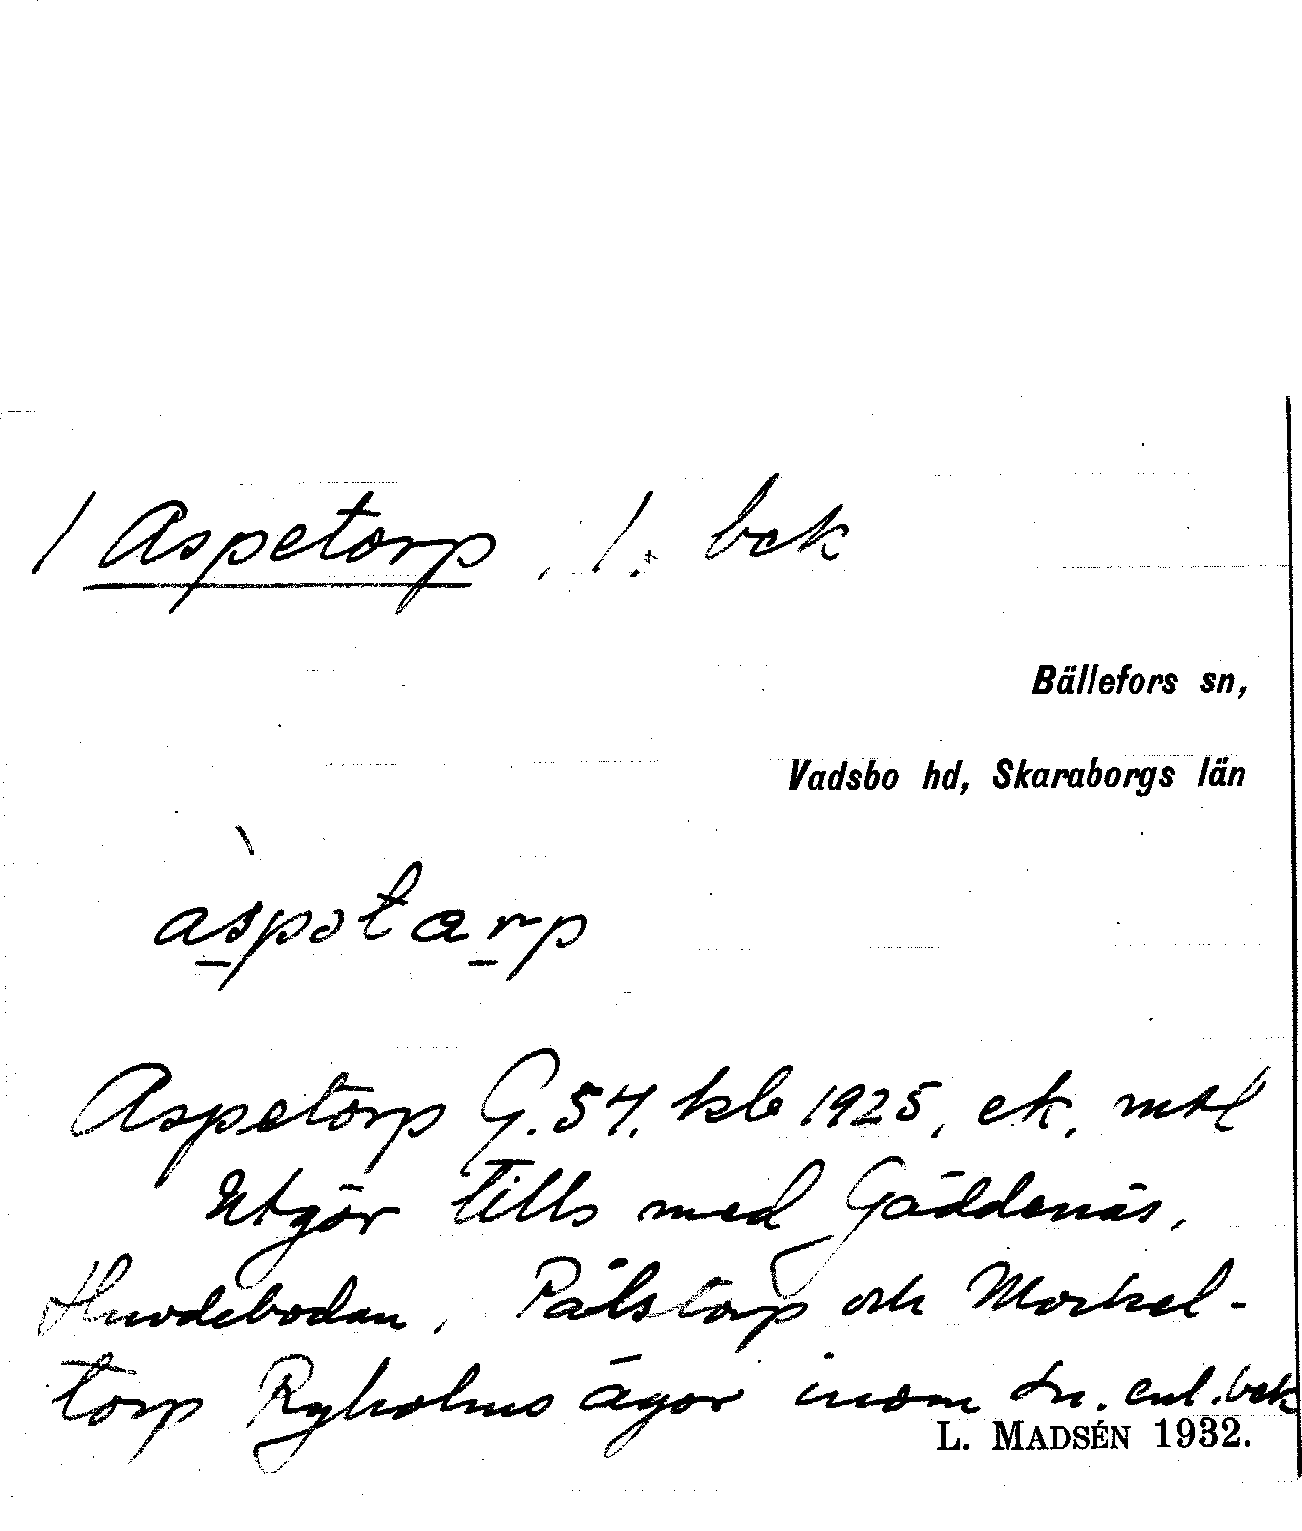 / Aspetorp, /. bek
Bällefors sn,
Vadsbo hd, Skaraborgs län
àspətarp
Aspetorp G. 54. kb 1925, ek. mtl
Utgör tills med Gäddenäs,
Huvdebodan, Pålstorp och Morkel-
torp Ryholms ägor inom sn. enl. bek
L. MADSÉN 1932.